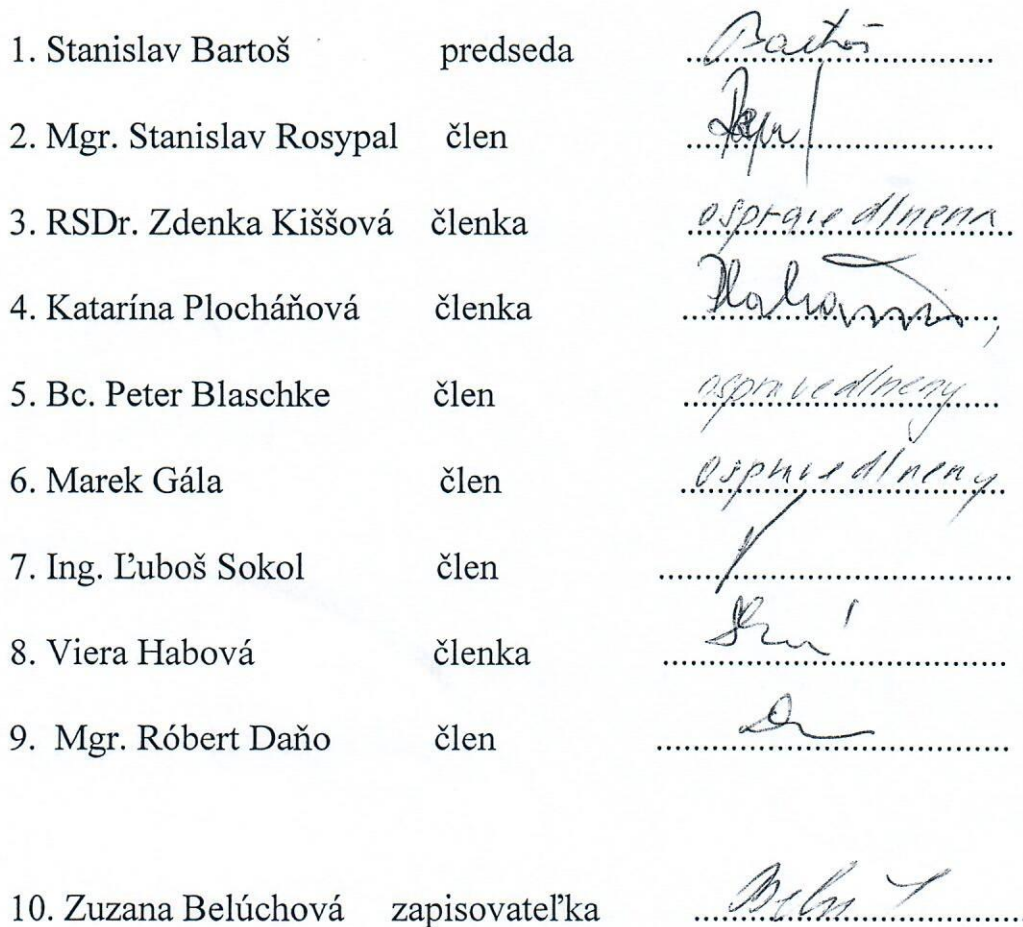 1. Stanislav Bartoš predseda Bartoš
2. Mgr. Stanislav Rosypal člen
3. RSDr. Zdenka Kiššová členka ospravedlnena
4. Katarína Plocháňová členka
5. Bc. Peter Blaschke člen ospravedlneny
6. Marek Gála člen ospravedlneny
7. Ing. Ľuboš Sokol člen
8. Viera Habová členka
9. Mgr. Róbert Daňo člen
10. Zuzana Belúchová zapisovateľka